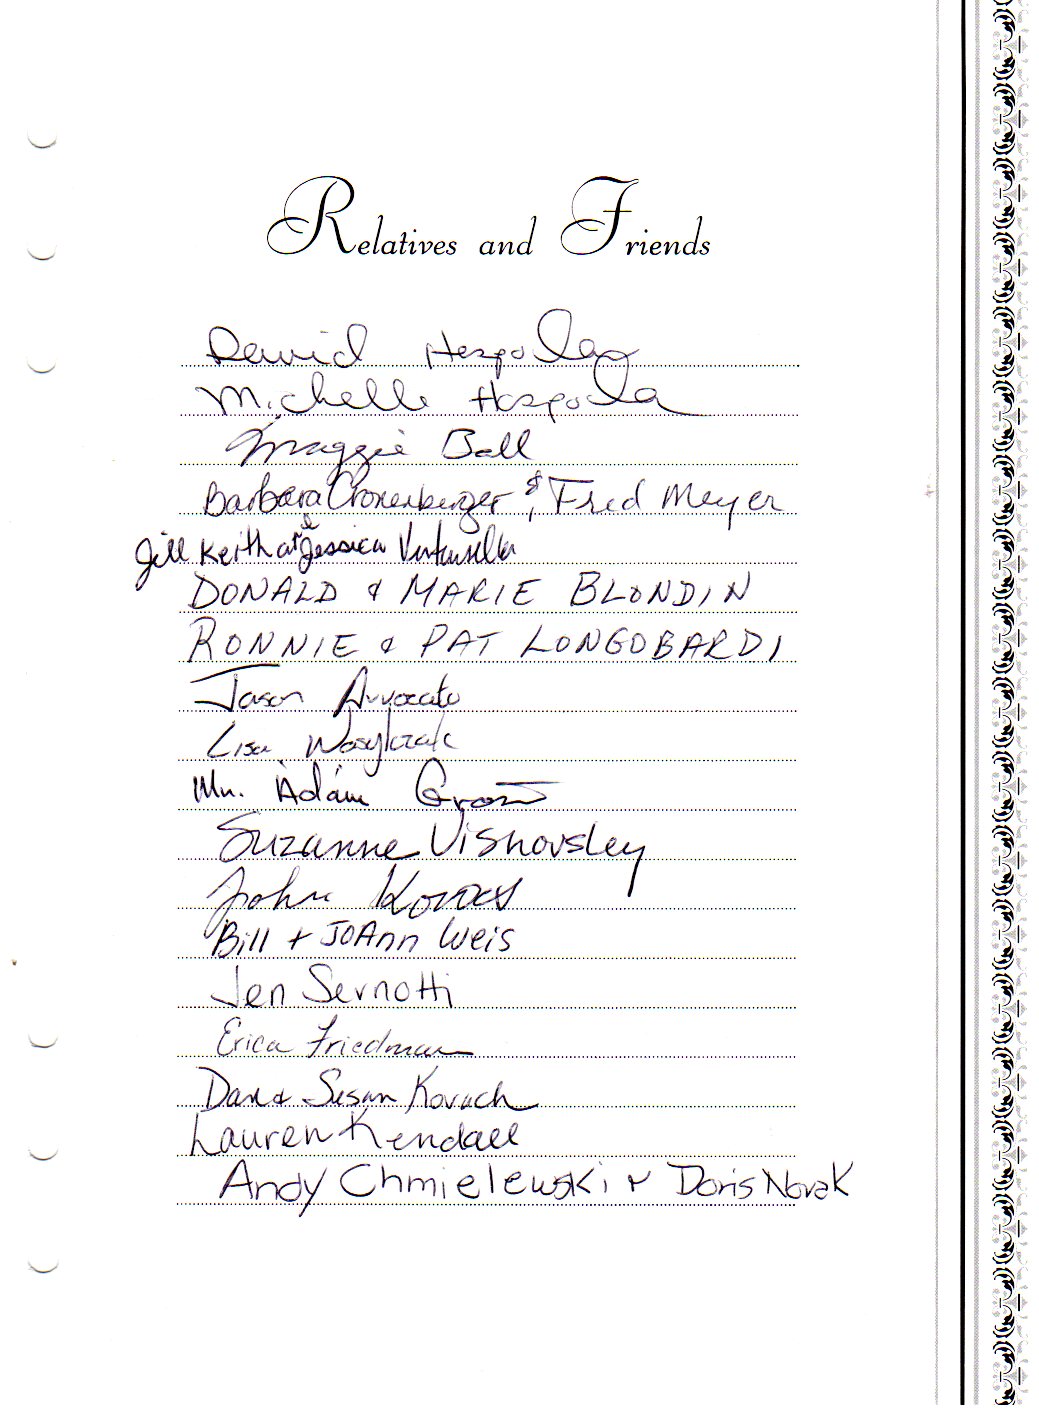 Relatives and Friends
David Hospodar
Michelle Hospoda
Maggie Ball
Barbara Cronenberger & Fred Meyer
Jill Keith & Jessica
DONALD & MARIE BLONDIN
RONNIE & PAT LONGOBARDI
Jason Avvocato
Lisa Wasylczak
Mr. Adam
Suzanne Vishovsley
John Kovacs
Bill + JoAnn Weis
Jen Sernotti
Erica Friedman
Dan & Susan Kovach
Lauren Kendall
Andy Chmielewski + Doris Novak